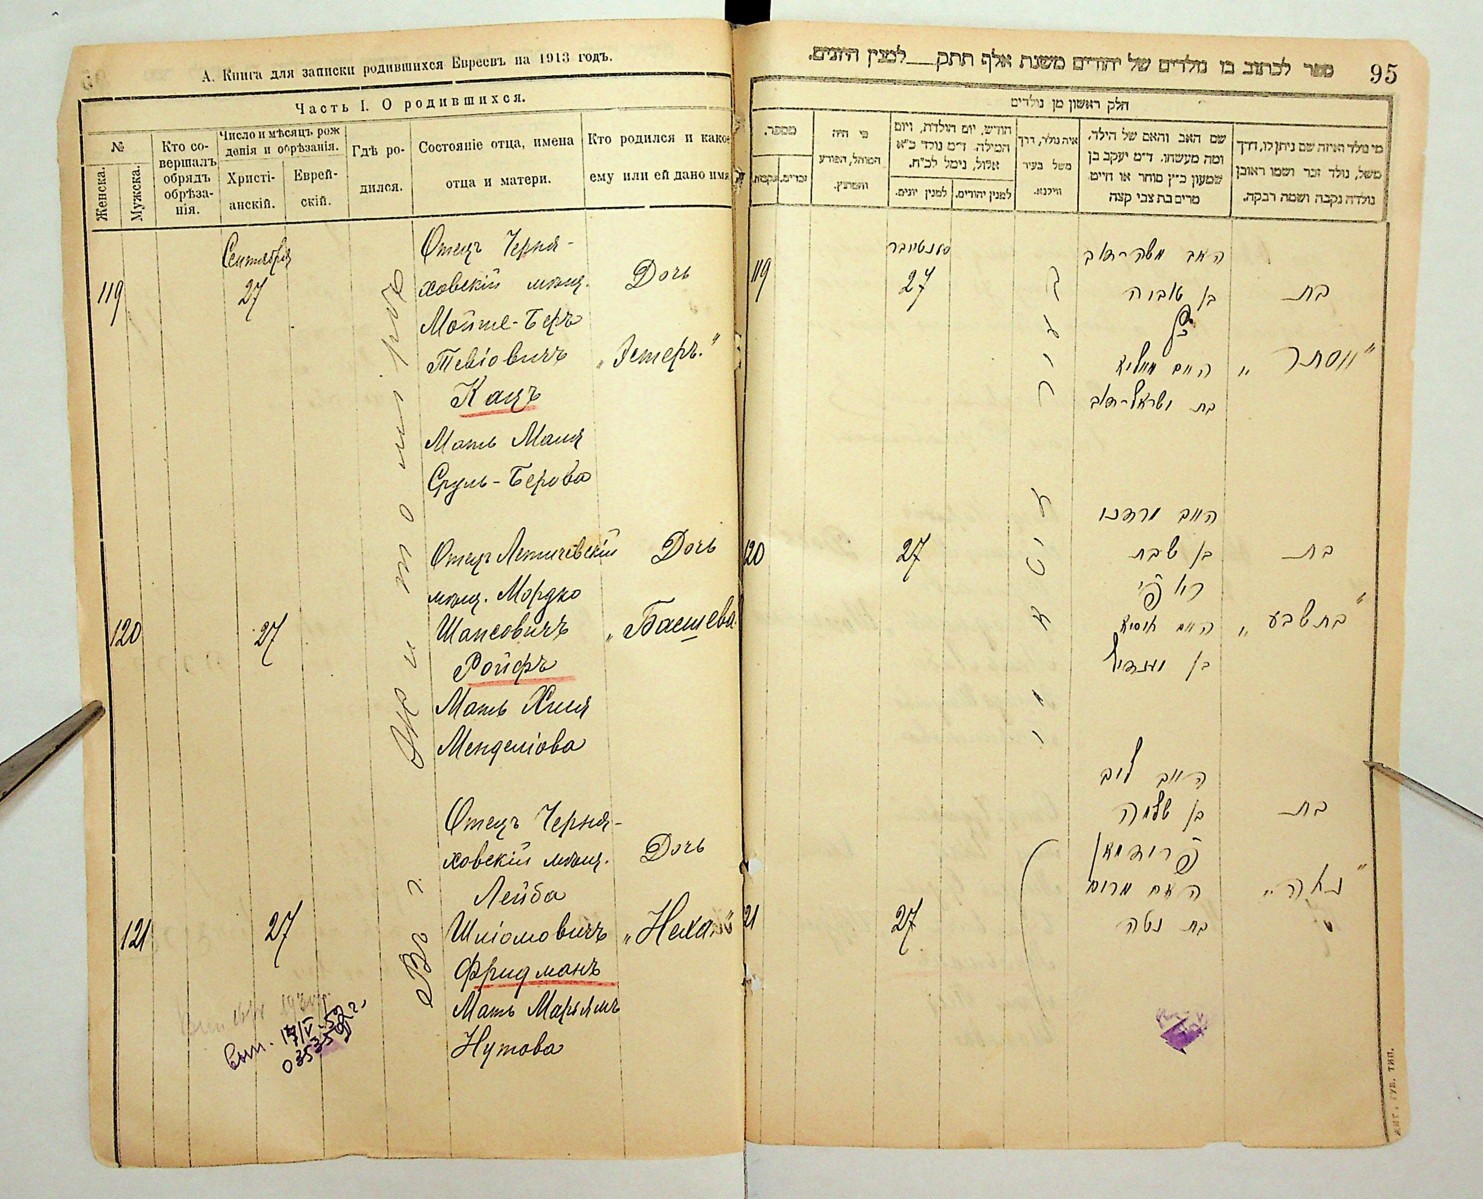 А. Книга для записки родившихся Евреевъ на 1913 годъ.
Часть I. О родившихся.
№
Женска.
Мужска.
Кто со-
вершалъ
обрядъ
обрѣза-
нія.
Число и мѣсяцъ рож
денія и обрѣзанія.
Христі-
анскій.
Еврей-
скій.
Гдѣ ро-
дился.
Состояніе отца, имена
отца и матери.
Кто родился и какое
ему или ей дано имя
Въ г. Житомірѣ
119
Сентября
27
Отецъ Черня-
ховскій мѣщ.
Мойше-Беръ
Тевіовичъ
Кацъ
Мать Маня
Сруль-Берова
Дочь
„Эстеръ.“
120
27
Отецъ Летичевскій
мѣщ. Мордко
Шапсовичъ
Ройфъ
Мать Хася
Менделіова
Дочь
„Басшева
121
27
Отецъ Черня-
ховскій мѣщ.
Лейба
Шліомовичъ
Фридманъ
Мать Марьямъ
Нутова
Дочь
„Неха“
ספר לכתוב בו נולדים של יהודים משנת אלף תתק למנין היונים.
95
חלק ראשון מן נולדים
מספר.
נקבות.
זכרים.
מי היה
המוהל, הפורע
והמוצץ.
חודש, יום הולדת, ויום
המילה. ד״מ נולד כ״א
אלול, נימל לכ״ח.
למנין יונים.
למנין יהודים.
איה נולד, דרך
משל בעיר
ווילנא.
שם האב והאם של הילד.
ומה מעשהו. ד״מ יעקב בן
שמעון כ״ץ סוחר או חייט.
מרים בת צבי קצה
מי נולד ואיזה שם ניתן לו, דרך
משל, נולד זכר ושמו ראובן
נולדה נקבה ושמה רבקה.
119
27
האב משה־בער
בן טוביה
כ״ץ
האם
בת ישראל־בער
בת
„אסתר“
120
27
האב מרדכי
בן שבת
האם
בת
„בת שבע“
121
27
האב ליב
בן שלמה
פרידמאן
האם מרים
בת נטה
בת
„נאחה“
17/V-52 г.